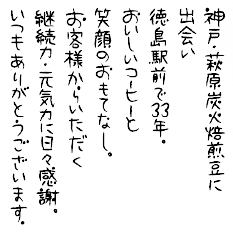 神戸・萩原炭火焙煎豆に
出会い
徳島駅前で33年。
おいしいコーヒーと
笑顔のおもてなし。
お客様からいただく
継続力・元気力に日々感謝。
いつもありがとうございます。